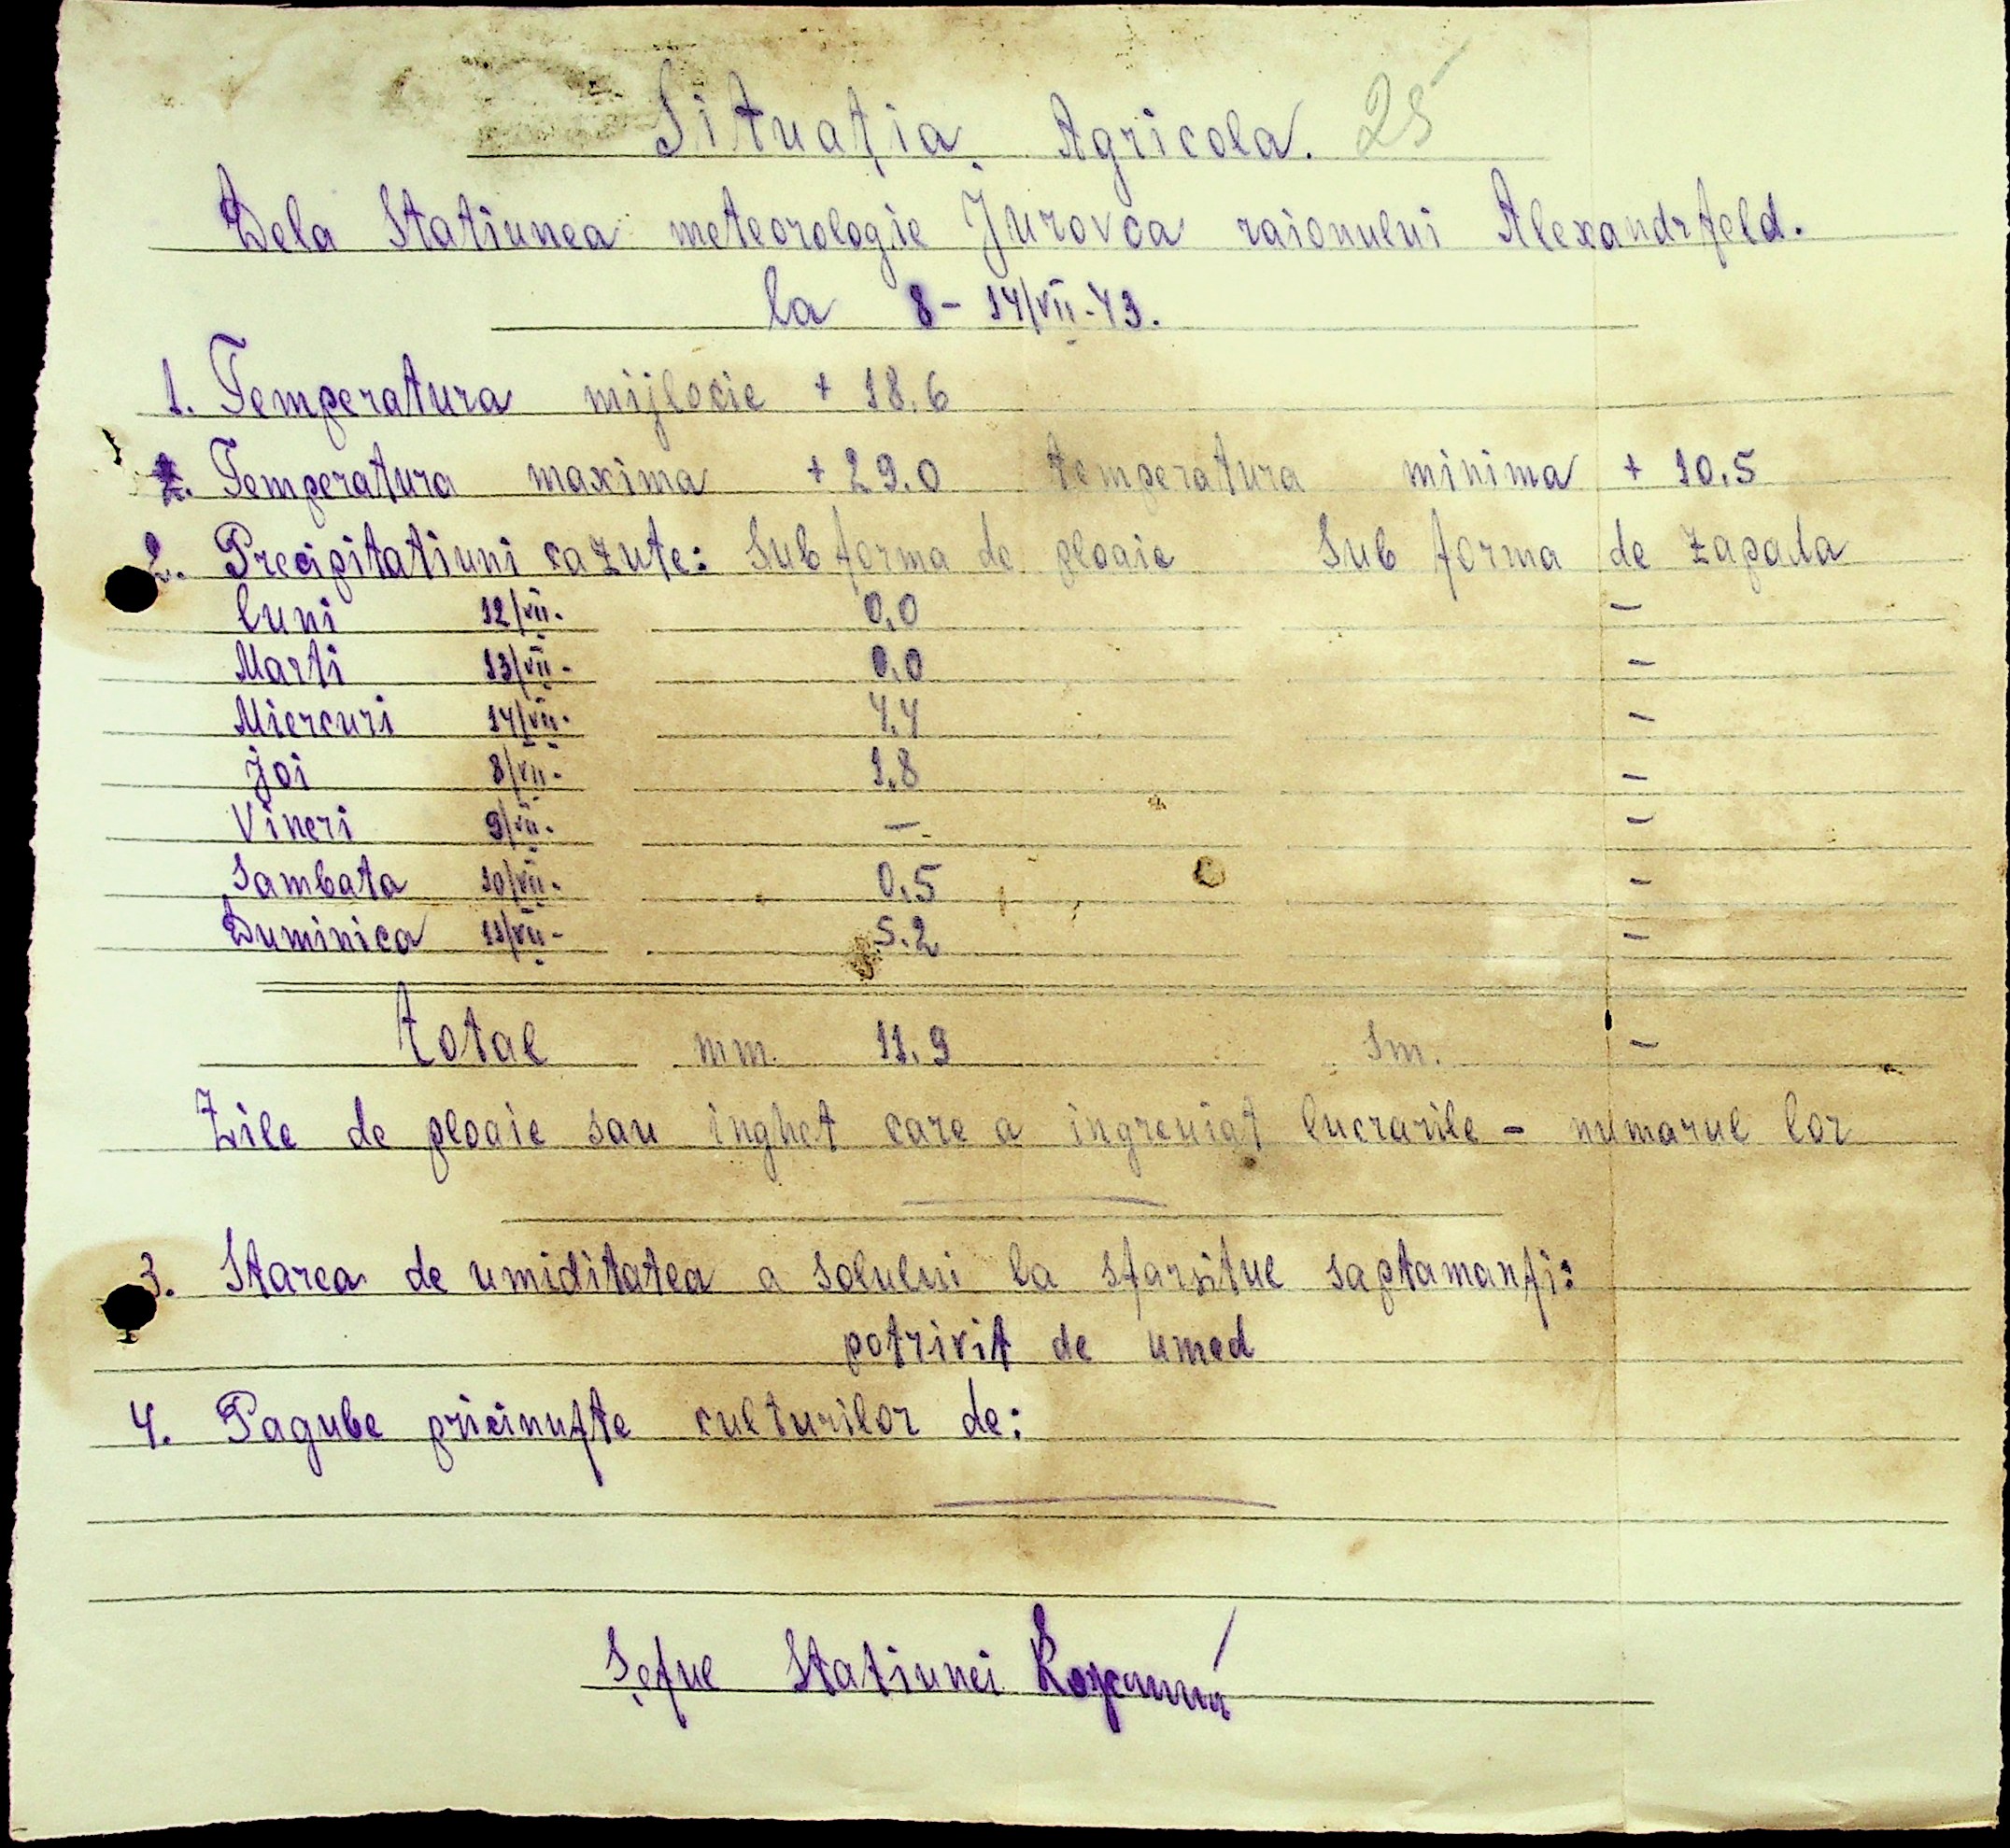 Situaţia Agricola. 25
Dela Statiunea meteorologie Jurovca raionului Alexandrfeld.
la 8 - 14/VII-43.
1. Temperatura mijlocie + 18.6
2. Temperatura maxima + 29.0 temperatura minima + 10.5
2. Precipitatiuni cazute: Sub forma de ploaie Sub forma de zapada
Luni 12/VII- 0.0 -
Marti 13/VII- 0.0 -
Miercuri 14/VII- 4.4 -
Joi 8/VII- 1.8 -
Vineri 9/VII- - -
Sambata 10/VII- 0.5 -
Duminica 11/VII- 5.2 -
total mm. 11.9 sm. -
Zile de ploaie sau inghet care a ingreuiat lucrarile - numarul lor
3. Starea de umiditatea a solului la sfarsitul saptamanţi:
potrivit de umed
4. Pagube pricinuţte culturilor de:
Şeful Statiunei